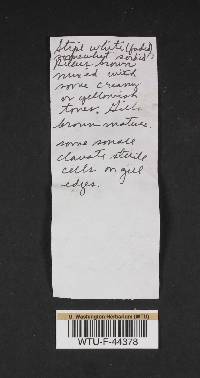 Stipe white (faded)
somewhat sordid?
Pileus brown
mixed with
some creamy
or yellowish
tones. Gills
brown mature.
some small
clavate sterile
cells on gill
edges.
U. Washington Herbarium (WTU)
WTU-F-44378